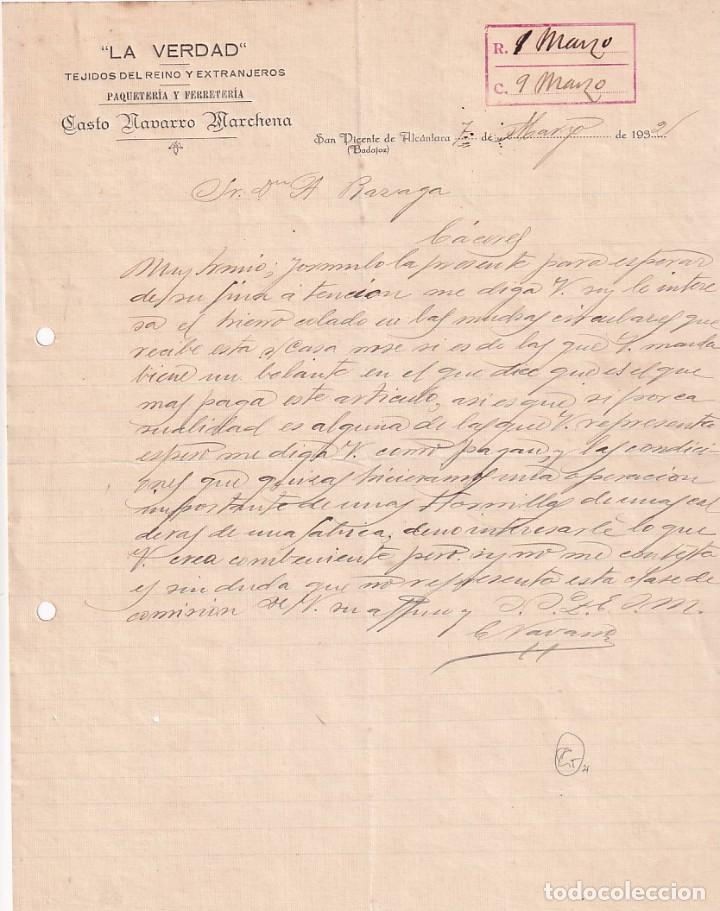 "LA VERDAD"
TEJIDOS DEL REINO Y EXTRANJEROS
PAQUETERÍA Y FERRETERÍA
Casto Navarro Marchena
R. 9 Marzo
C. 9 Marzo
San Vicente de Alcántara 7 de Marzo de 1932
(Badajoz)
Sr. Dn A
Cáceres
Muy Sr mio; formulo la presente para esperar
de su fina atencion me diga V. sy le intere
sa el hierro colado en las muchas circulares que
recibe esta s/ Casa nose si es de las que V. manda
biene un bolante en el que dice que es el que
mas paga este articulo, asi es que si por ca
sualidad es alguna de las que V. representa
espero me diga V. como pagan y las condici
ones que quizas hicieramos una operacion
importante de unas Hornillas de unas cal
deras de una fabrica, de no interesarle lo que
V. crea combeniente pero sy no me contesta
es sin duda que no representa esta clase de
comision de V. su affmo y S. S. Q. E. S. M.
C Navarro
todocoleccion